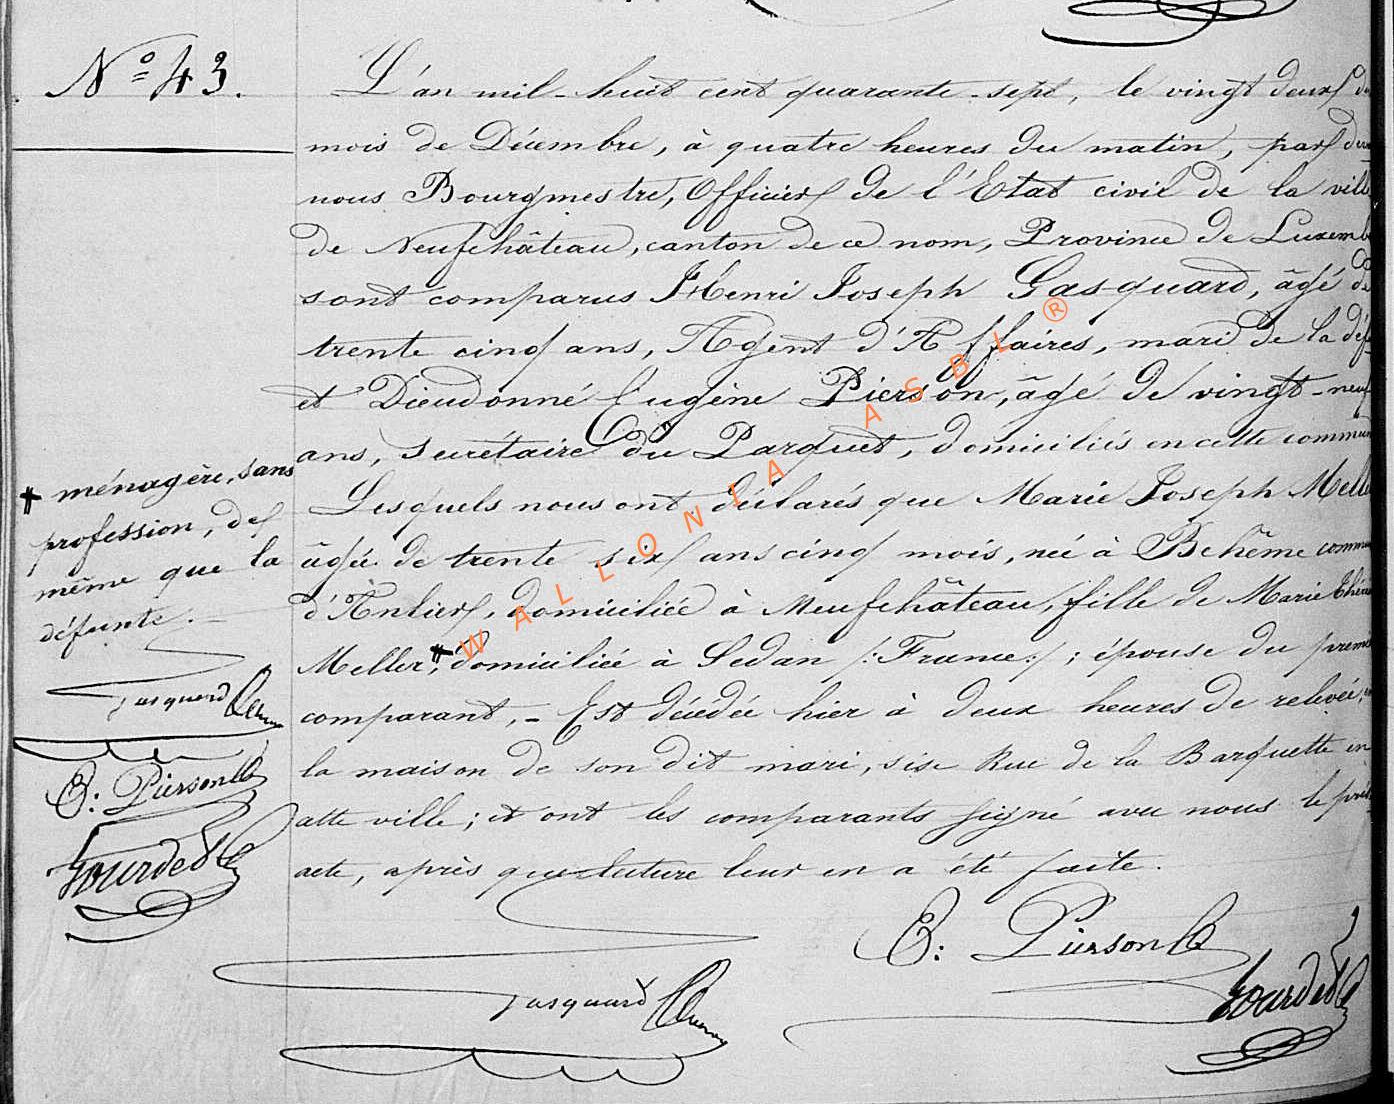 N° 43.
L'an mil-huit cent quarante-sept, le vingt deux du
mois de Décembre, à quatre heures du matin, par devant
nous Bourgmestre, Officier de l'Etat civil de la ville
de Neufchâteau, canton de ce nom, Province de Luxemb
sont comparus Henri Joseph Gasquard, âgé de
trente cinq ans, Agent d'Affaires, mari de la déf
et Dieudonné Eugène Pierson, âgé de vingt-neuf
ans, secrétaire du Parquet, domiciliés en cette commun
Lesquels nous ont déclarés que Marie Joseph Melle
âgée de trente six ans cinq mois, née à Behême commu
d'Anlier, domiciliée à Neufchâteau, fille de Marie Thérè
Meller, ‡ domiciliée à Sedan /:France:/ ; épouse du premi
comparant, - Est décédée hier à deux heures de relevée, en
la maison de son dit mari, sise Rue de la Barquette en
cette ville ; et ont les comparants signé avec nous le prés
acte, après que lecture leur en a été faite.
‡ ménagère, sans
profession, de
même que la
défunte.
Gasquard
E: Pierson
Gourdet
E: Pierson
Gasquard
Gourdet
WALLONIA ASBL ®